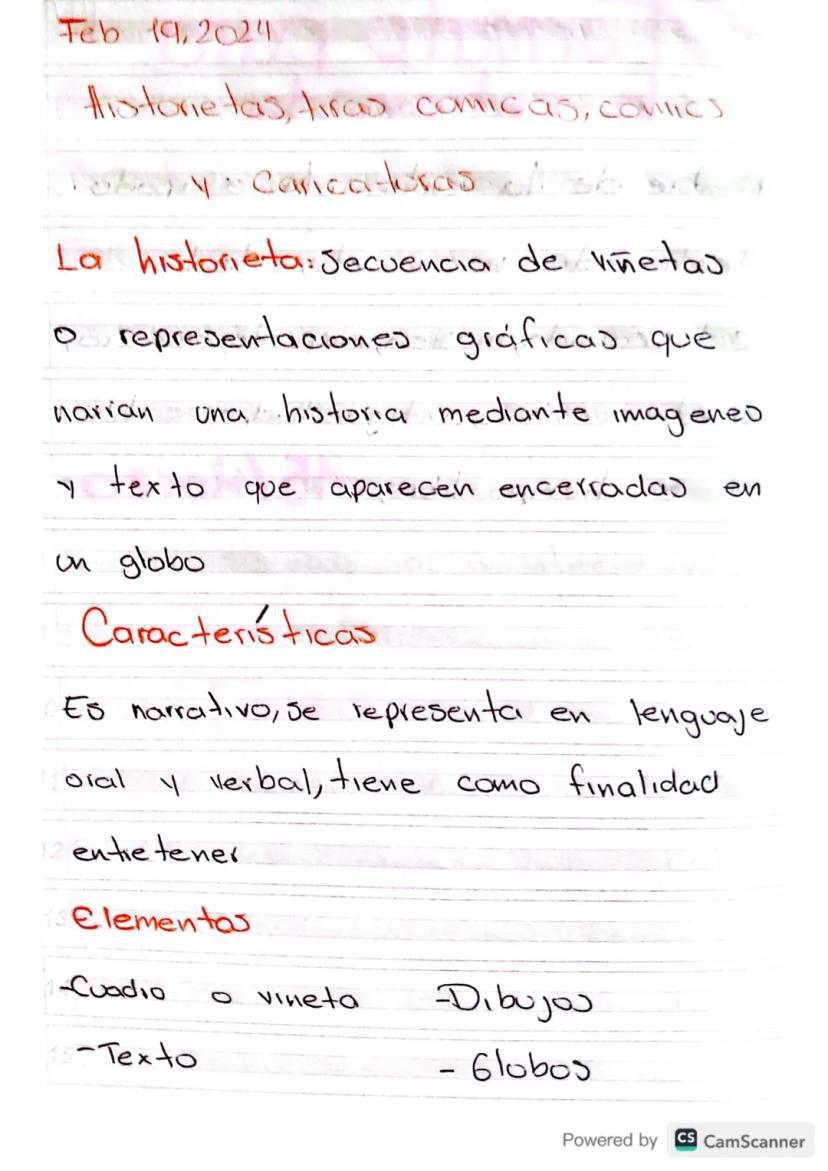 Feb 19, 2024
Historietas, tiras comicas, comics
y Caricaturas
La historieta: Secuencia de viñetas
o representaciones gráficas que
narran una historia mediante imagenes
y texto que aparecen encerradas en
un globo
Características
Es narrativo, se representa en lenguaje
oral y verbal, tiene como finalidad
entretener
Elementos
-Cuadro o vineta -Dibujos
-Texto - Globos
Powered by CS CamScanner